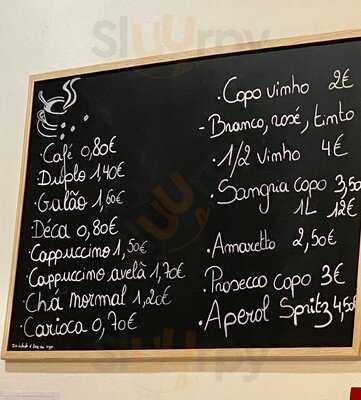 Sluurpy
.Café 0,80€
Duplo 1,40€
.Galão 1,60€
.Déca 0,80€
.Cappuccino 1,50€
.Cappuccino avelã 1,70€
.Chá normal 1,20€
.Carioca 0,70€
.Copo vinho 2€
- Branco, rosé, tinto
.1/2 vinho 4€
.Sangria copo 3,50
1L 12€
.Amaretto 2,50€
.Prosecco copo 3€
.Aperol Spritz 4,50€